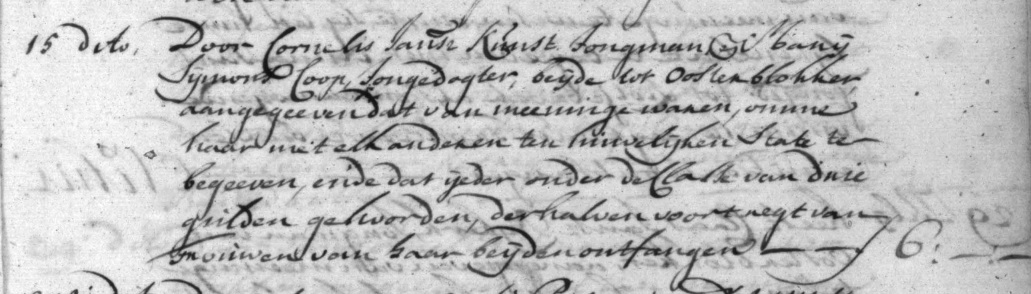 15 dito, Door Cornelis Jansz Kunst Jongman en
Sijmons Coop, Jongedogter, beijde tot Oosterblokker
aangegeeven dat van meeninge waren, omme
haar met elkanderen ten huwelijken State te
begeeven, ende dat ijeder onder de Classe van drie
gulden gehoorden, derhalven voor 't regt van
Trouwen van haar beijden ontfangen — — 6:—:—